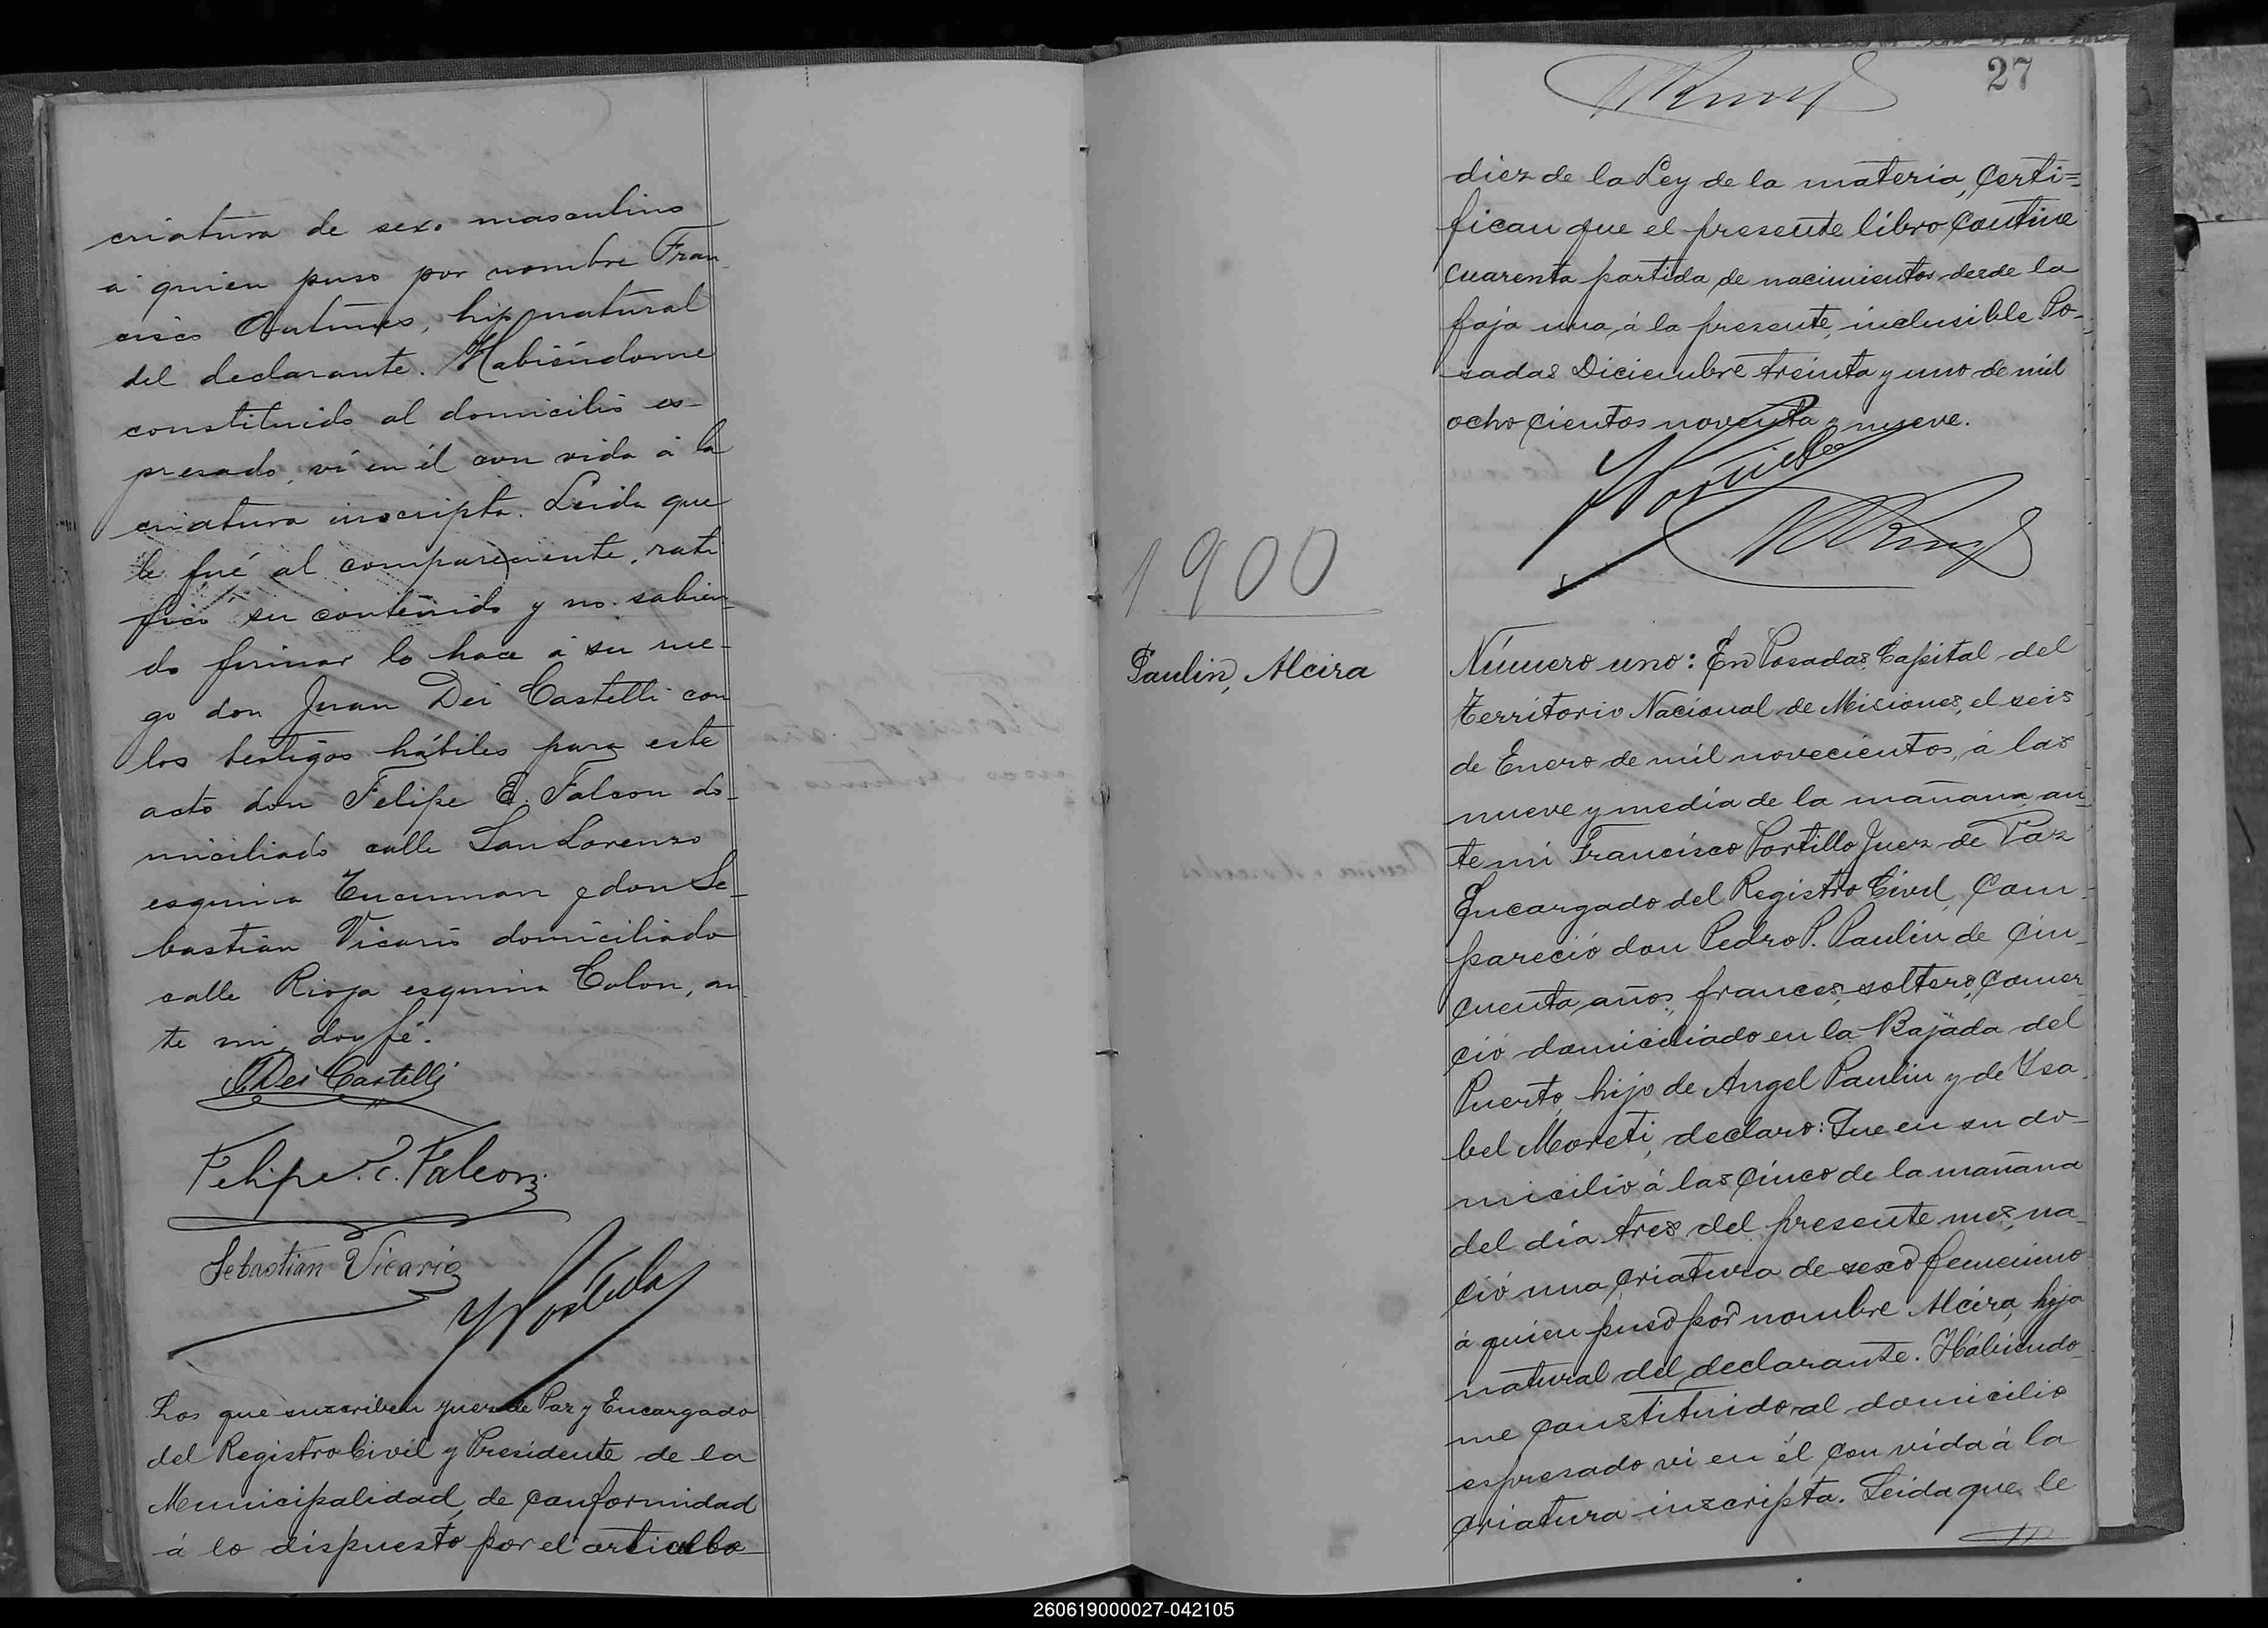 criatura de sexo masculino
á quien puso por nombre Fran-
cisco Antunes, hijo natural
del declarante. Habiéndome
constituido al domicilio es-
presado, ví en él con vida á la
criatura inscripta. Leida que
le fué al compareciente, rati
ficó su contenido y no sabien-
do firmar lo hace á su rue-
go don Juan Dei Castelli con
los testigos hábiles para este
acto don Felipe E. Falcon do-
miciliado calle San Lorenzo
esquina Tucuman y don Se-
bastian Vicario domiciliado
calle Rioja esquina Colon, an
te mi, doy fé.
J. Dei Castelli
Felipe E. Falcon
Sebastian Vicario
Los que suscriben Juez de Paz y Encargado
del Registro Civil y Presidente de la
Municipalidad, de conformidad
á lo dispuesto por el articulo
27
diez de la Ley de la materia, Certi=
fican que el presente libro Contine
cuarenta partida de nacimientos desde la
foja una, á la presente, inclusible Po-
sadas Diciembre treinta y uno de mil
ocho cientos noventa y nueve.
1900
Paulin, Alcira
Número uno: En Posadas, Capital del
Territorio Nacional de Misiones, el seis
de Enero de mil novecientos, á las
nueve y media de la mañana, an-
te mi Francisco Portillo Juez de Paz
Encargado del Registro Civil, Com-
pareció don Pedro P. Paulin de Cin-
cuenta años, frances, soltero, Comer-
cio domiciliado en la Bajada del
Puerto, hijo de Angel Paulin y de Ysa-
bel Moreti, declaro: Que en su do-
micilio á las Cinco de la mañana
del día tres del presente mes, na-
ció una Criatura de sexo femenino
á quien puso por nombre Alcira, hija
natural del declarante. Habiendo-
me Constituido al domicilio
espresado vi en él Con vida á la
Criatura inscripta. Leida que le
260619000027-042105